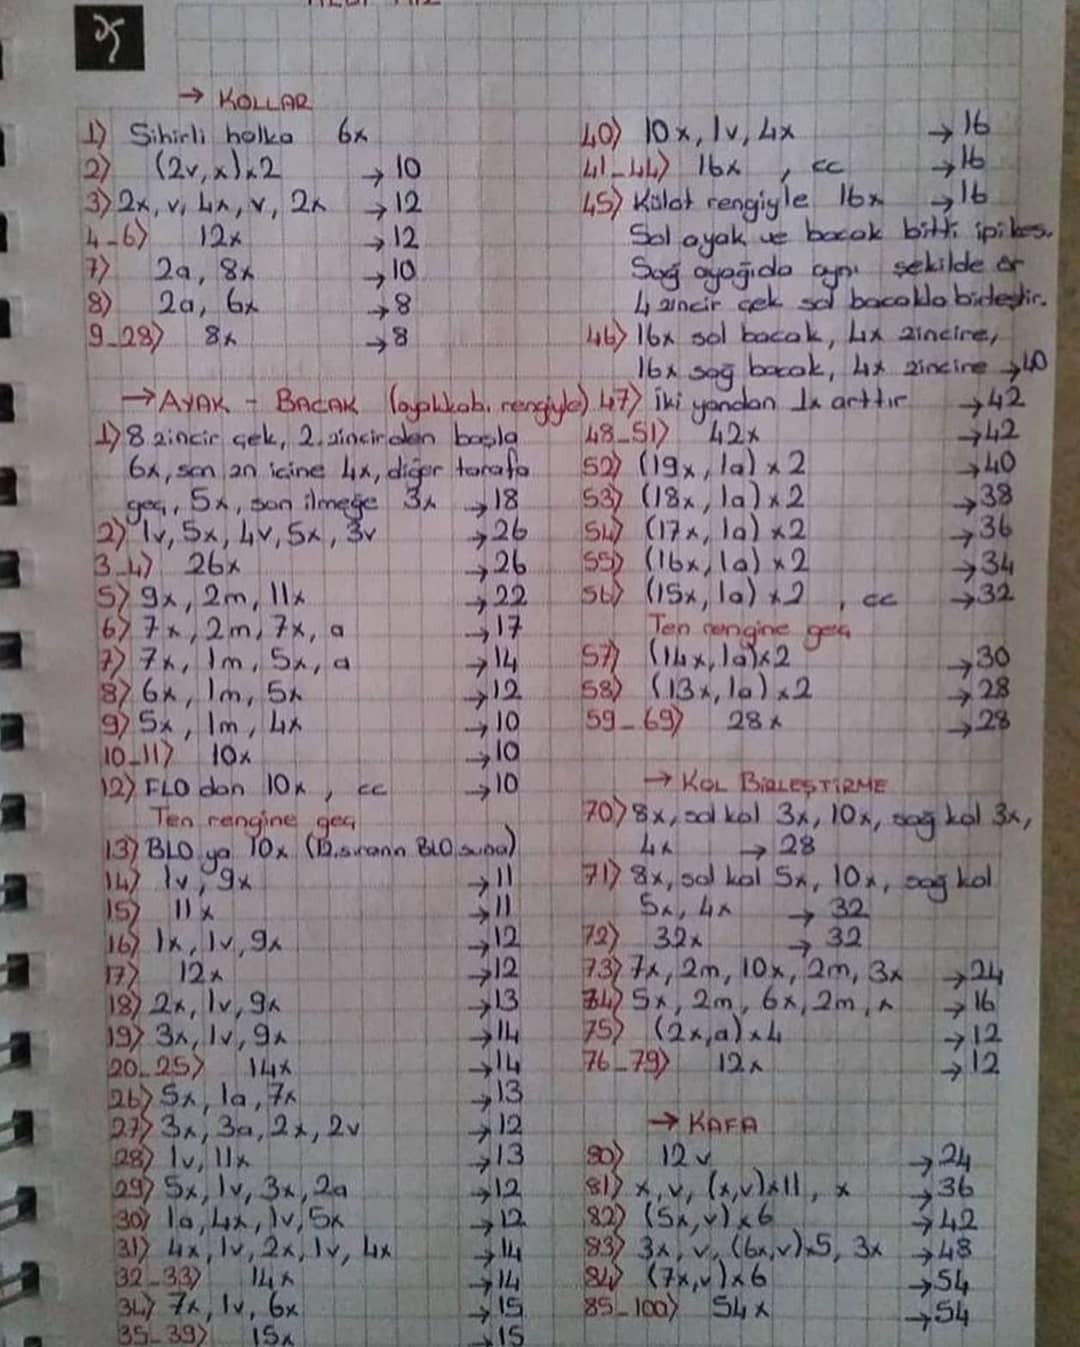 → KOLLAR
1) Sihirli halka 6x
2) (2v,x)x2 → 10
3) 2x, v, 4x, v, 2x → 12
4-6) 12x → 12
7) 2a, 8x → 10
8) 2a, 6x → 8
9-28) 8x → 8
→ AYAK - BACAK (ayakkabı rengiyle)
1) 8 zincir çek, 2.zincirden başla
6x, son zn içine 4x, diğer tarafa
geç, 5x, son ilmeğe 3x → 18
2) 1v, 5x, 4v, 5x, 3v → 26
3-4) 26x → 26
5) 9x, 2m, 11x → 22
6) 7x, 2m, 7x, a → 17
7) 7x, 1m, 5x, a → 14
8) 6x, 1m, 5x → 12
9) 5x, 1m, 4x → 10
10-11) 10x → 10
12) FLO dan 10x, cc → 10
Ten rengine geç
13) BLO ya 10x (12.sıranın BLO suna)
14) 1v, 9x → 11
15) 11x → 11
16) 1x, 1v, 9x → 12
17) 12x → 12
18) 2x, 1v, 9x → 13
19) 3x, 1v, 9x → 14
20-25) 14x → 14
26) 5x, 1a, 7x → 13
27) 3x, 3a, 2x, 2v → 12
28) 1v, 11x → 13
29) 5x, 1v, 3x, 2a → 12
30) 1a, 4x, 1v, 5x → 12
31) 4x, 1v, 2x, 1v, 4x → 14
32-33) 14x → 14
34) 7x, 1v, 6x → 15
35-39) 15x → 15
40) 10x, 1v, 4x → 16
41-44) 16x , cc → 16
45) Külot rengiyle 16x → 16
Sol ayak ve bacak bitti ipi kes.
Sağ ayağıda aynı şekilde ör
4 zincir çek sol bacakla birleştir.
46) 16x sol bacak, 4x zincire,
16x sağ bacak, 4x zincire → 40
47) iki yandan 1x arttır → 42
48-51) 42x → 42
52) (19x, 1a) x 2 → 40
53) (18x, 1a) x 2 → 38
54) (17x, 1a) x2 → 36
55) (16x, 1a) x 2 → 34
56) (15x, 1a) x2 , cc → 32
Ten rengine geç
57) (14x, 1a)x2 → 30
58) (13x, 1a) x2 → 28
59-69) 28x → 28
→ KOL BİRLEŞTİRME
70) 8x, sol kol 3x, 10x, sağ kol 3x,
4x → 28
71) 8x, sol kol 5x, 10x, sağ kol
5x, 4x → 32
72) 32x → 32
73) 7x, 2m, 10x, 2m, 3x → 24
74) 5x, 2m, 6x, 2m, x → 16
75) (2x,a)x4 → 12
76-79) 12x → 12
→ KAFA
80) 12v → 24
81) x, v, (x,v)x11, x → 36
82) (5x,v)x6 → 42
83) 3x, v, (6x,v)x5, 3x → 48
84) (7x,v)x6 → 54
85-100) 54x → 54